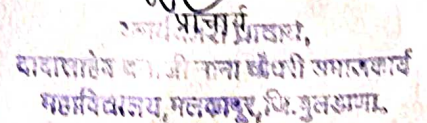 प्राचार्य
प्राचार्य,
दादासाहेब धनाजी नाना चौधरी समाजकार्य
महाविद्यालय, मलकापूर, जि. बुलडाणा.